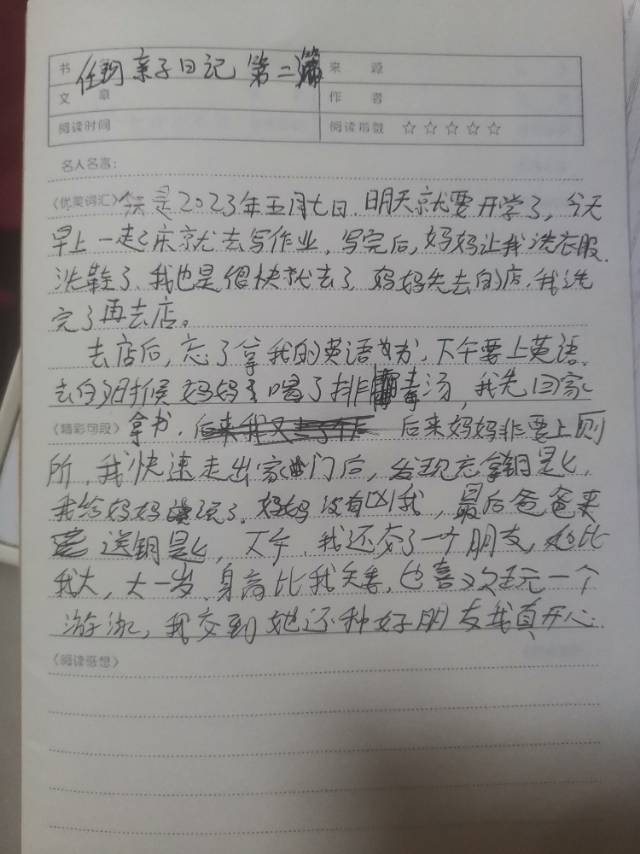 书 任玥亲子日记 第二篇 来 源
文 章 作 者
阅读时间 阅读指数 ☆☆☆☆☆
名人名言:
《优美词汇》今天是2023年五月七日.明天就要开学了,今天
早上一起床就去写作业,写完后,妈妈让我洗衣服.
洗鞋子.我也是很快就去了.妈妈先去的店,我洗
完了再去店。
去店后,忘了拿我的英语书,下午要上英语.
去的时候妈妈喝了排毒汤,我先回家
《精彩句段》拿书. 后来妈妈非要上厕
所,我快速走出家门后,发现忘拿钥匙,
我给妈妈说了.妈妈没有凶我,最后爸爸来
送钥匙,下午,我还交了一个朋友,她比
我大,大一岁.身高比我,也喜欢玩一个
游戏,我交到她这种好朋友我真开心
《阅读感想》